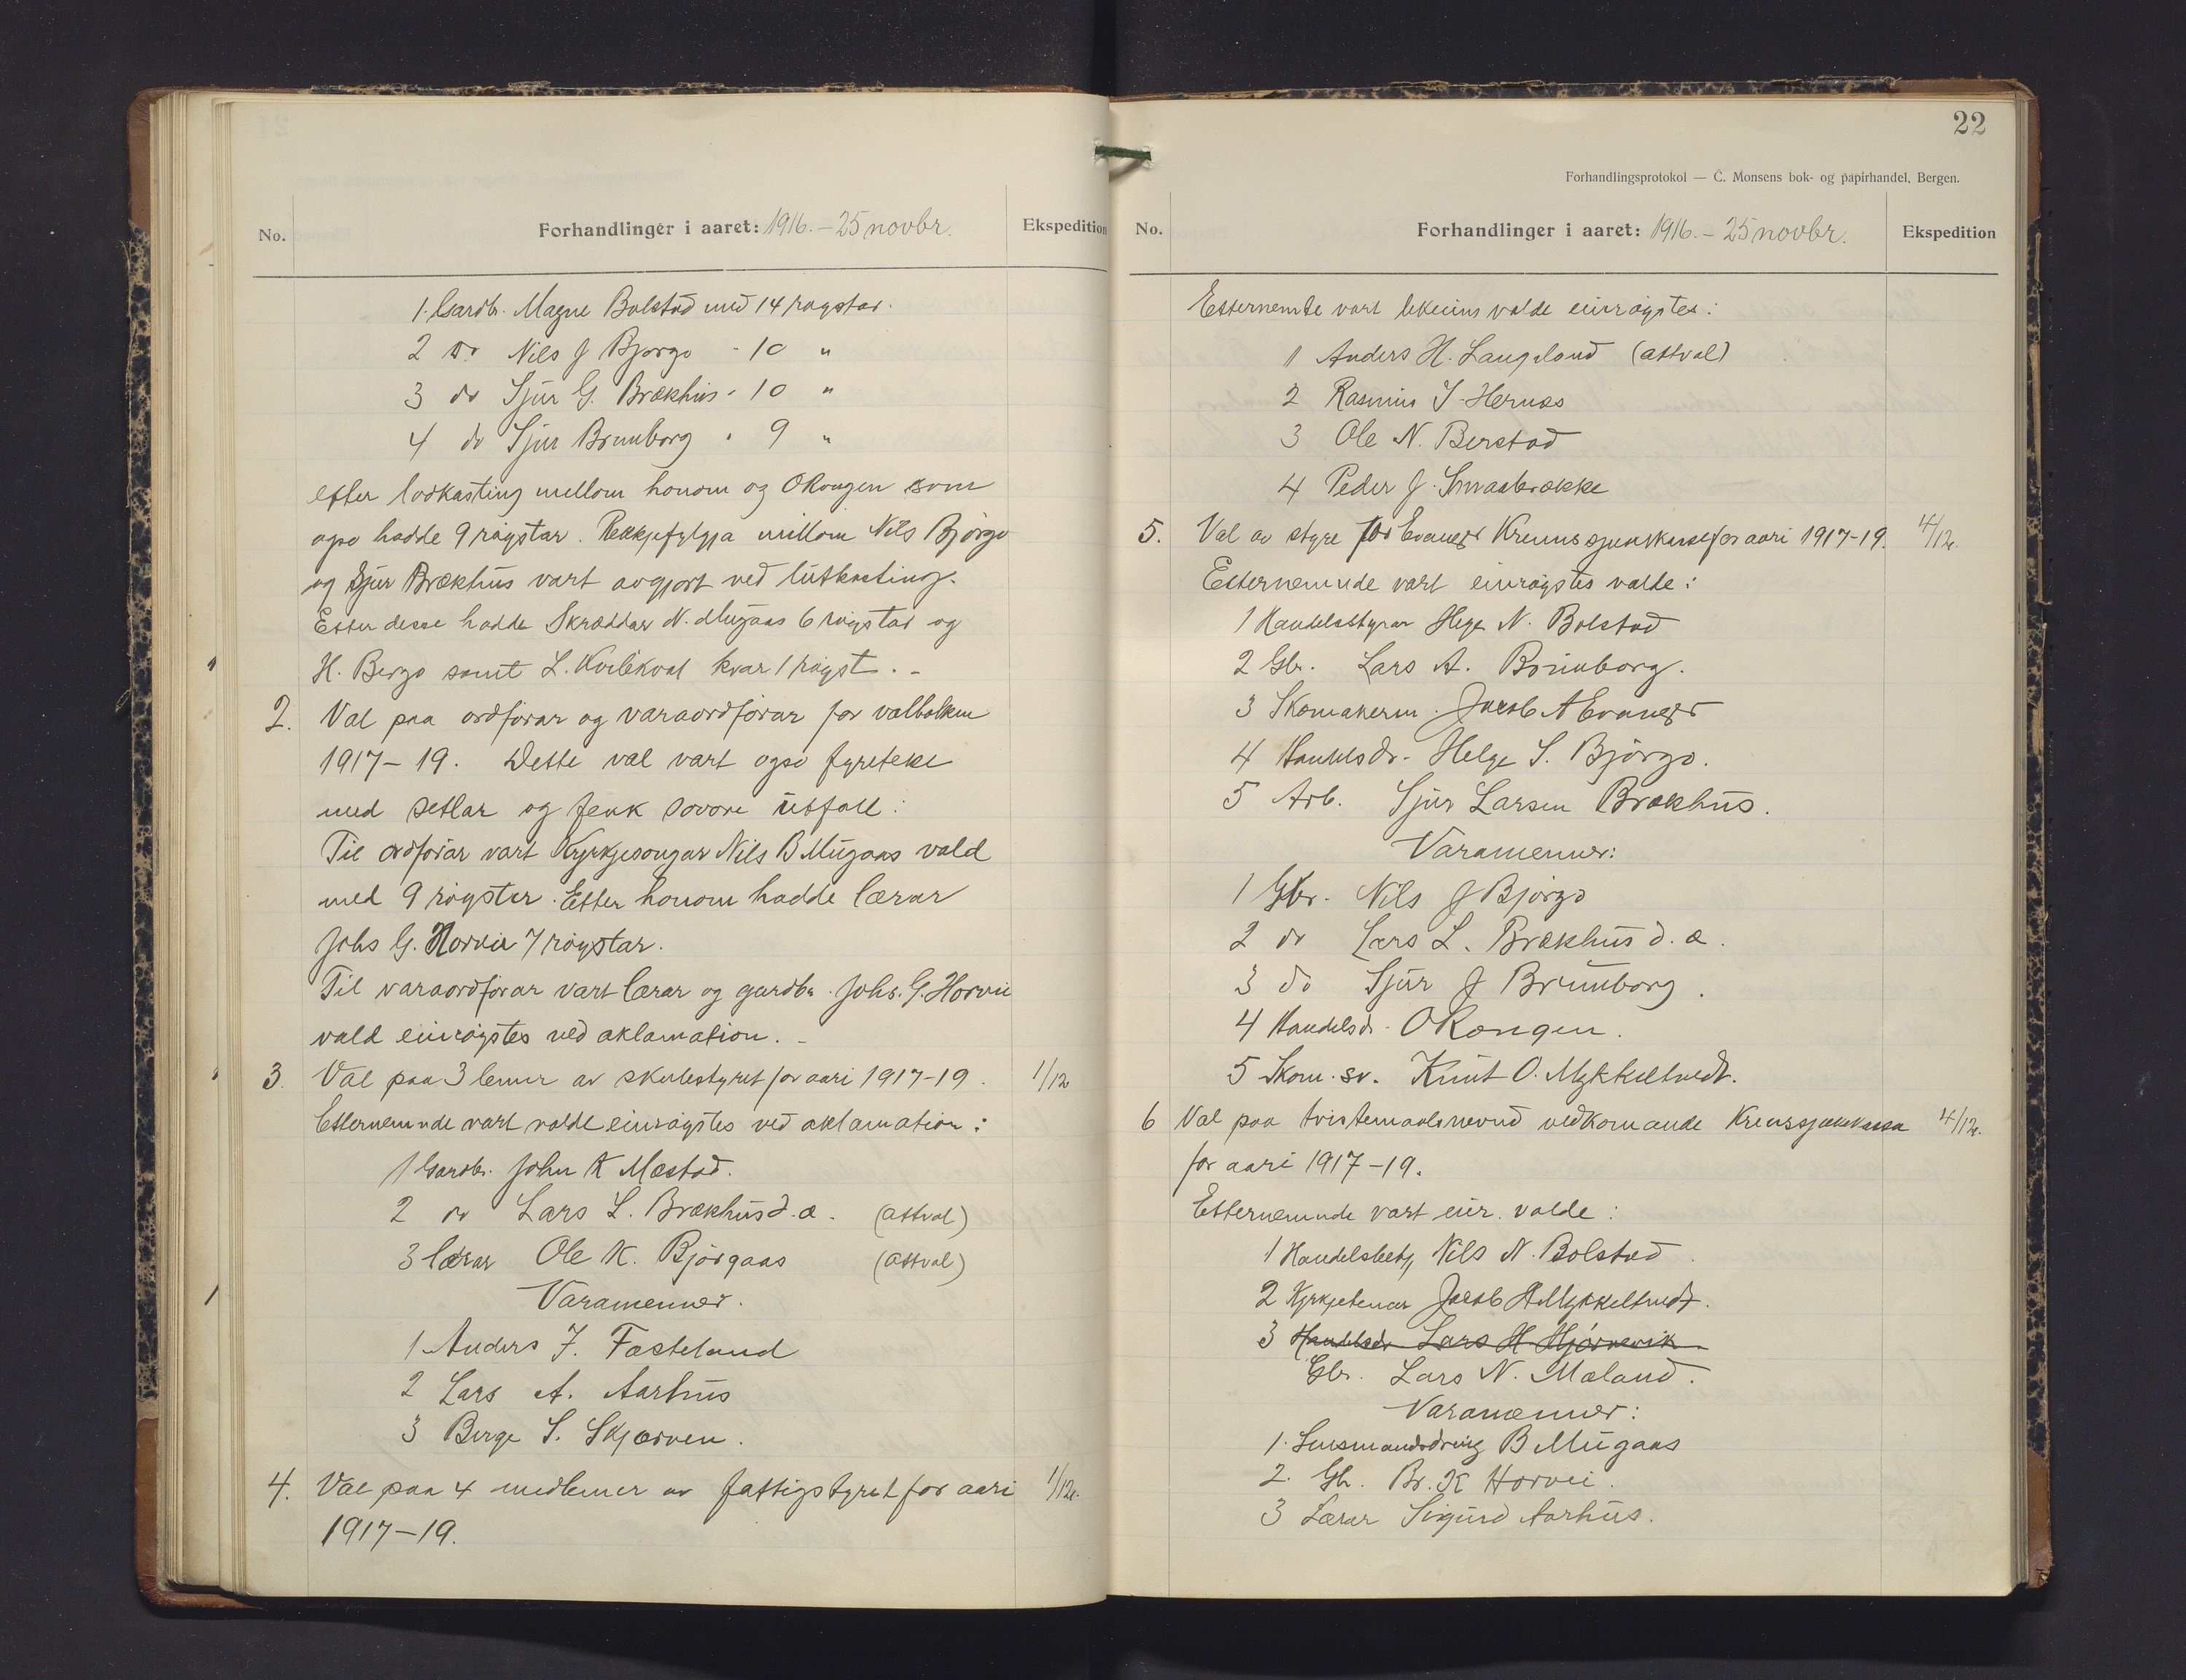 No.
Forhandlinger i aaret: 1916. – 25 novbr.
Ekspedition
1. Gardbr. Magne Bolstad med 14 røystar.
2 do Nils J Bjørgo - 10 "
3 do Sjur G. Brækhus - 10 "
4 do Sjur Brunborg " 9 "
efter lodkasting mellom honom og O Rongen som
ogso hadde 9 røystar. Rekkjefylgja millom Nils Bjørgo
og Sjur Brækhus vart avgjort ved lutkasting.
Etter desse hadde Skræddar N. Mugaas 6 røystar og
H. Bergo samt L. Kvilekval kvar 1 røyst. -
2. Val paa ordførar og varaordførar for valbolken
1917-19. Dette val vart ogso fyreteke
med setlar og fenk sovore utfall:
Til ordførar vart Kyrkjesongar Nils B Mugaas vald
med 9 røyster. Etter honom hadde lærar
Johs G. Horvei 7 røystar.
Til varaordførar vart lærar og gardbr. Johs. G. Horvei
vald einrøystes ved aklamation. -
3. Val paa 3 lemer av skulestyret for aari 1917-19. 1/12
Etternemnde vart valde einrøystes ved aklamation:
1 Gardbr. John K Mæstad.
2 do Lars L. Brækhus d.æ. (attval)
3 lærar Ole K. Bjørgaas (attval)
Varamenner.
1 Anders J. Fasteland
2 Lars A. Aarhus
3 Berge S. Skjerven.
4. Val paa 4 medlemer av fattigstyret for aari 1/12.
1917-19.
22
Forhandlingsprotokol — C. Monsens bok- og papirhandel, Bergen.
No.
Forhandlinger i aaret: 1916. – 25 novbr.
Ekspedition
Etternemde vart lekeins valde einrøystes:
1 Anders H. Langeland (attval)
2 Rasmus J. Hernæs
3 Ole N. Berstad
4 Peder J. Smaabrække
5. Val av styre for Evanger Krinssjukekasse for aari 1917-19. 4/12.
Etternemnde vart einrøystes valde:
1 Handelsstyrar Helge N. Bolstad
2 Gbr. Lars A. Brunborg.
3 Skomakerm. Jacob A Evanger
4 Handelsdr. Helge S. Bjørgo.
5 Arb. Sjur Larsen Brækhus.
Varamenner:
1 Gbr. Nils J Bjørgo
2 do Lars L. Brækhus d.æ.
3 do Sjur J Brunborg.
4 Handelsdr. O Rongen.
5 Skom. sv. Knut O. Mykkeltvedt.
6 Val paa tvistemaalsnevnd vedkomande Krinssjukekassa 4/12.
for aari 1917-19.
Etternemnde vart einr. valde:
1 Handelsbetj. Nils N. Bolstad.
2 Kyrkjetenar Jacob H Mykkeltvedt.
3 Handelsdr Lars H. Hjørnevik
Gbr. Lars N. Mæland.
Varamenner:
1. Lensmandsdreng B Mugaas
2. Gbr. Br. K Horvei.
3 Lærar Sigurd Aarhus.